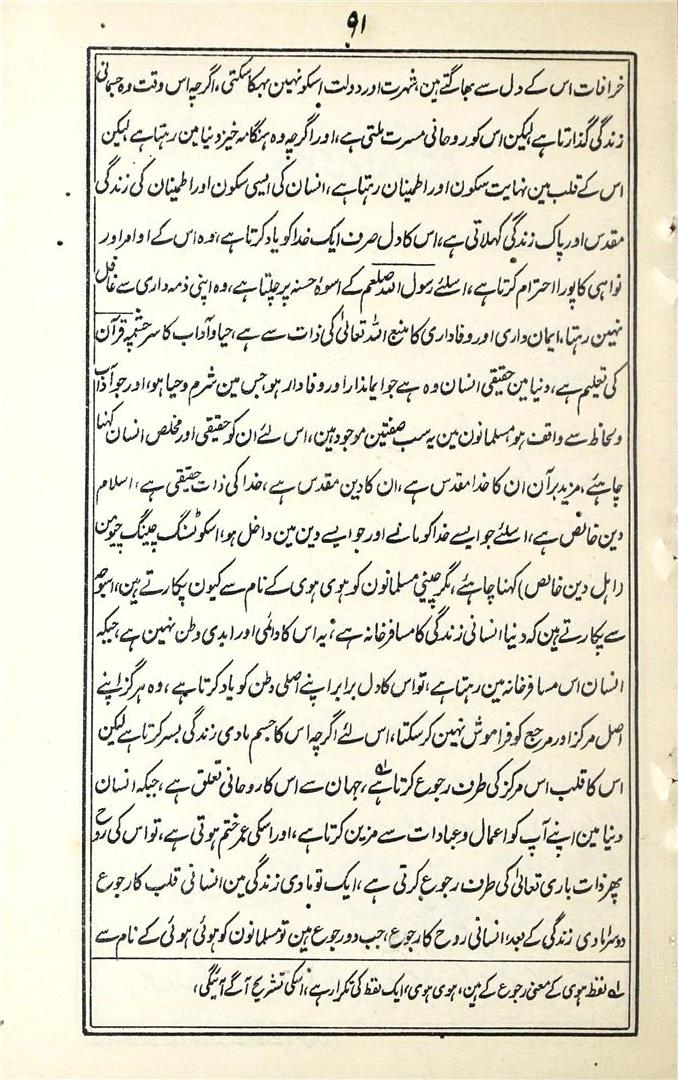 ۹۱
خرافات اس کے دل سے بھاگتے ہین، شہرت اور دولت اسکو نہین بہکا سکتی، اگرچہ اس وقت وہ جسمانی
زندگی گذارتا ہے لیکن اس کو روحانی مسرت ملتی ہے، اور اگرچہ وہ ہنگامہ خیز دنیا مین رہتا ہے لیکن
اس کے قلب مین نہایت سکون اور اطمینان رہتا ہے، انسان کی ایسی سکون اور اطمینان کی زندگی
مقدس اور پاک زندگی کہلاتی ہے، اس کا دل صرف ایک خدا کو یاد کرتا ہے، وہ اس کے اوامر اور
نواہی کا پورا احترام کرتا ہے، اسلئے رسول اللہ صلعم کے اسوۂ حسنہ پر چلتا ہے، وہ اپنی ذمہ داری سے غافل
نہین رہتا، ایمان داری اور وفاداری کا منبع اللہ تعالیٰ کی ذات سے ہے، حیا و آداب کا سرچشمہ قرآن
کی تعلیم ہے، دنیا مین حقیقی انسان وہ ہے جو ایماندار اور وفادار ہو، جس مین شرم و حیا ہو، اور جو آداب
و لحاظ سے واقف ہو، مسلمانون مین یہ سب صفتین موجود ہین، اس لئے ان کو حقیقی اور مخلص انسان کہنا
چاہئے، مزید برآن ان کا خدا مقدس ہے، ان کا دین مقدس ہے، خدا کی ذات حقیقی ہے، اسلام
دین خالص ہے، اسلئے جو ایسے خدا کو مانے اور جو ایسے دین مین داخل ہو، اسکو ٹسنگ چینگ چیومین
(اہل دین خالص) کہنا چاہئے، مگر چینی مسلمانون کو ہوی ہوی کے نام سے کیون پکارتے ہین، اسوجہ
سے پکارتے ہین کہ دنیا انسانی زندگی کا مسافرخانہ ہے، یہ اس کا دائمی اور ابدی وطن نہین ہے، جبکہ
انسان اس مسافرخانہ مین رہتا ہے، تو اس کا دل برابر اپنے اصلی وطن کو یاد کرتا ہے، وہ ہرگز اپنے
اصل مرکز اور مرجع کو فراموش نہین کر سکتا، اس لئے اگرچہ اس کا جسم مادی زندگی بسر کرتا ہے لیکن
اس کا قلب اس مرکز کی طرف رجوع کرتا ہے، جہان سے اس کا روحانی تعلق ہے، جبکہ انسان
دنیا مین اپنے آپ کو اعمال و عبادات سے مزین کرتا ہے، اور اسکی عمر ختم ہوتی ہے، تو اس کی روح
پھر ذات باری تعالیٰ کی طرف رجوع کرتی ہے، ایک تو مادی زندگی مین انسانی قلب کا رجوع
دوسرا مادی زندگی کے بعد انسانی روح کا رجوع، جب دو رجوع ہین تو مسلمانون کو ہوئی ہوئی کے نام سے
لہ لفظ ہوی کے معنی رجوع کے ہین، ہوی ہوی، ایک لفظ کی تکرار ہے، اسکی تشریح آگے آئیگی،